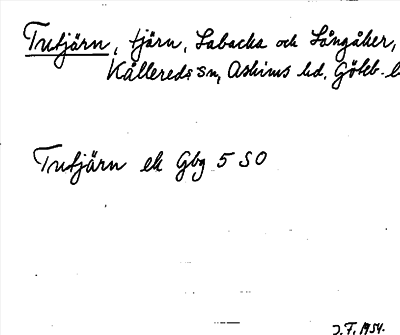 Tutjärn, tjärn, Labacka och Långåker,
Kållereds sn, Askims hd, Göteb.
Tutjärn ek Gbg 5 SO
J.F. 1954.